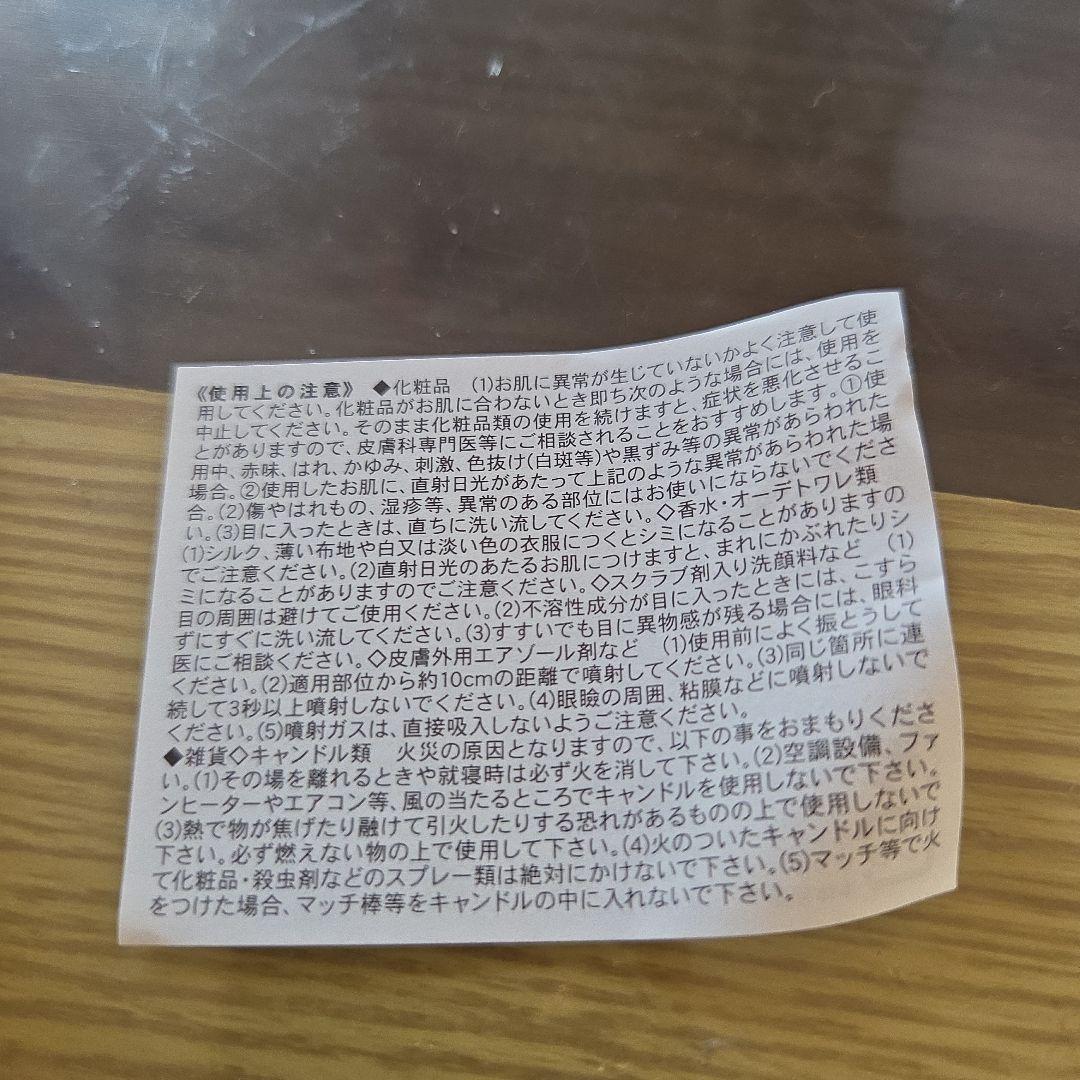 《使用上の注意》 ◆化粧品 (1)お肌に異常が生じていないかよく注意して使
用してください。化粧品がお肌に合わないとき即ち次のような場合には、使用を
中止してください。そのまま化粧品類の使用を続けますと、症状を悪化させるこ
とがありますので、皮膚科専門医等にご相談されることをおすすめします。①使
用中、赤味、はれ、かゆみ、刺激、色抜け(白斑等)や黒ずみ等の異常があらわれた
場合。②使用したお肌に、直射日光があたって上記のような異常があらわれた場
合。(2)傷やはれもの、湿疹等、異常のある部位にはお使いにならないでくださ
い。(3)目に入ったときは、直ちに洗い流してください。◇香水・オーデトワレ類
(1)シルク、薄い布地や白又は淡い色の衣服につくとシミになることがありますの
でご注意ください。(2)直射日光のあたるお肌につけますと、まれにかぶれたりシ
ミになることがありますのでご注意ください。◇スクラブ剤入り洗顔料など (1)
目の周囲は避けてご使用ください。(2)不溶性成分が目に入ったときには、こすら
ずにすぐに洗い流してください。(3)すすいでも目に異物感が残る場合には、眼科
医にご相談ください。◇皮膚外用エアゾール剤など (1)使用前によく振とうして
ください。(2)適用部位から約10cmの距離で噴射してください。(3)同じ箇所に連
続して3秒以上噴射しないでください。(4)眼瞼の周囲、粘膜などに噴射しないで
ください。(5)噴射ガスは、直接吸入しないようご注意ください。
◆雑貨◇キャンドル類 火災の原因となりますので、以下の事をおまもりくださ
い。(1)その場を離れるときや就寝時は必ず火を消して下さい。(2)空調設備、ファ
ンヒーターやエアコン等、風の当たるところでキャンドルを使用しないで下さい。
(3)熱で物が焦げたり融けて引火したりする恐れがあるものの上で使用しないで
下さい。必ず燃えない物の上で使用して下さい。(4)火のついたキャンドルに向け
て化粧品・殺虫剤などのスプレー類は絶対にかけないで下さい。(5)マッチ等で火
をつけた場合、マッチ棒等をキャンドルの中に入れないで下さい。